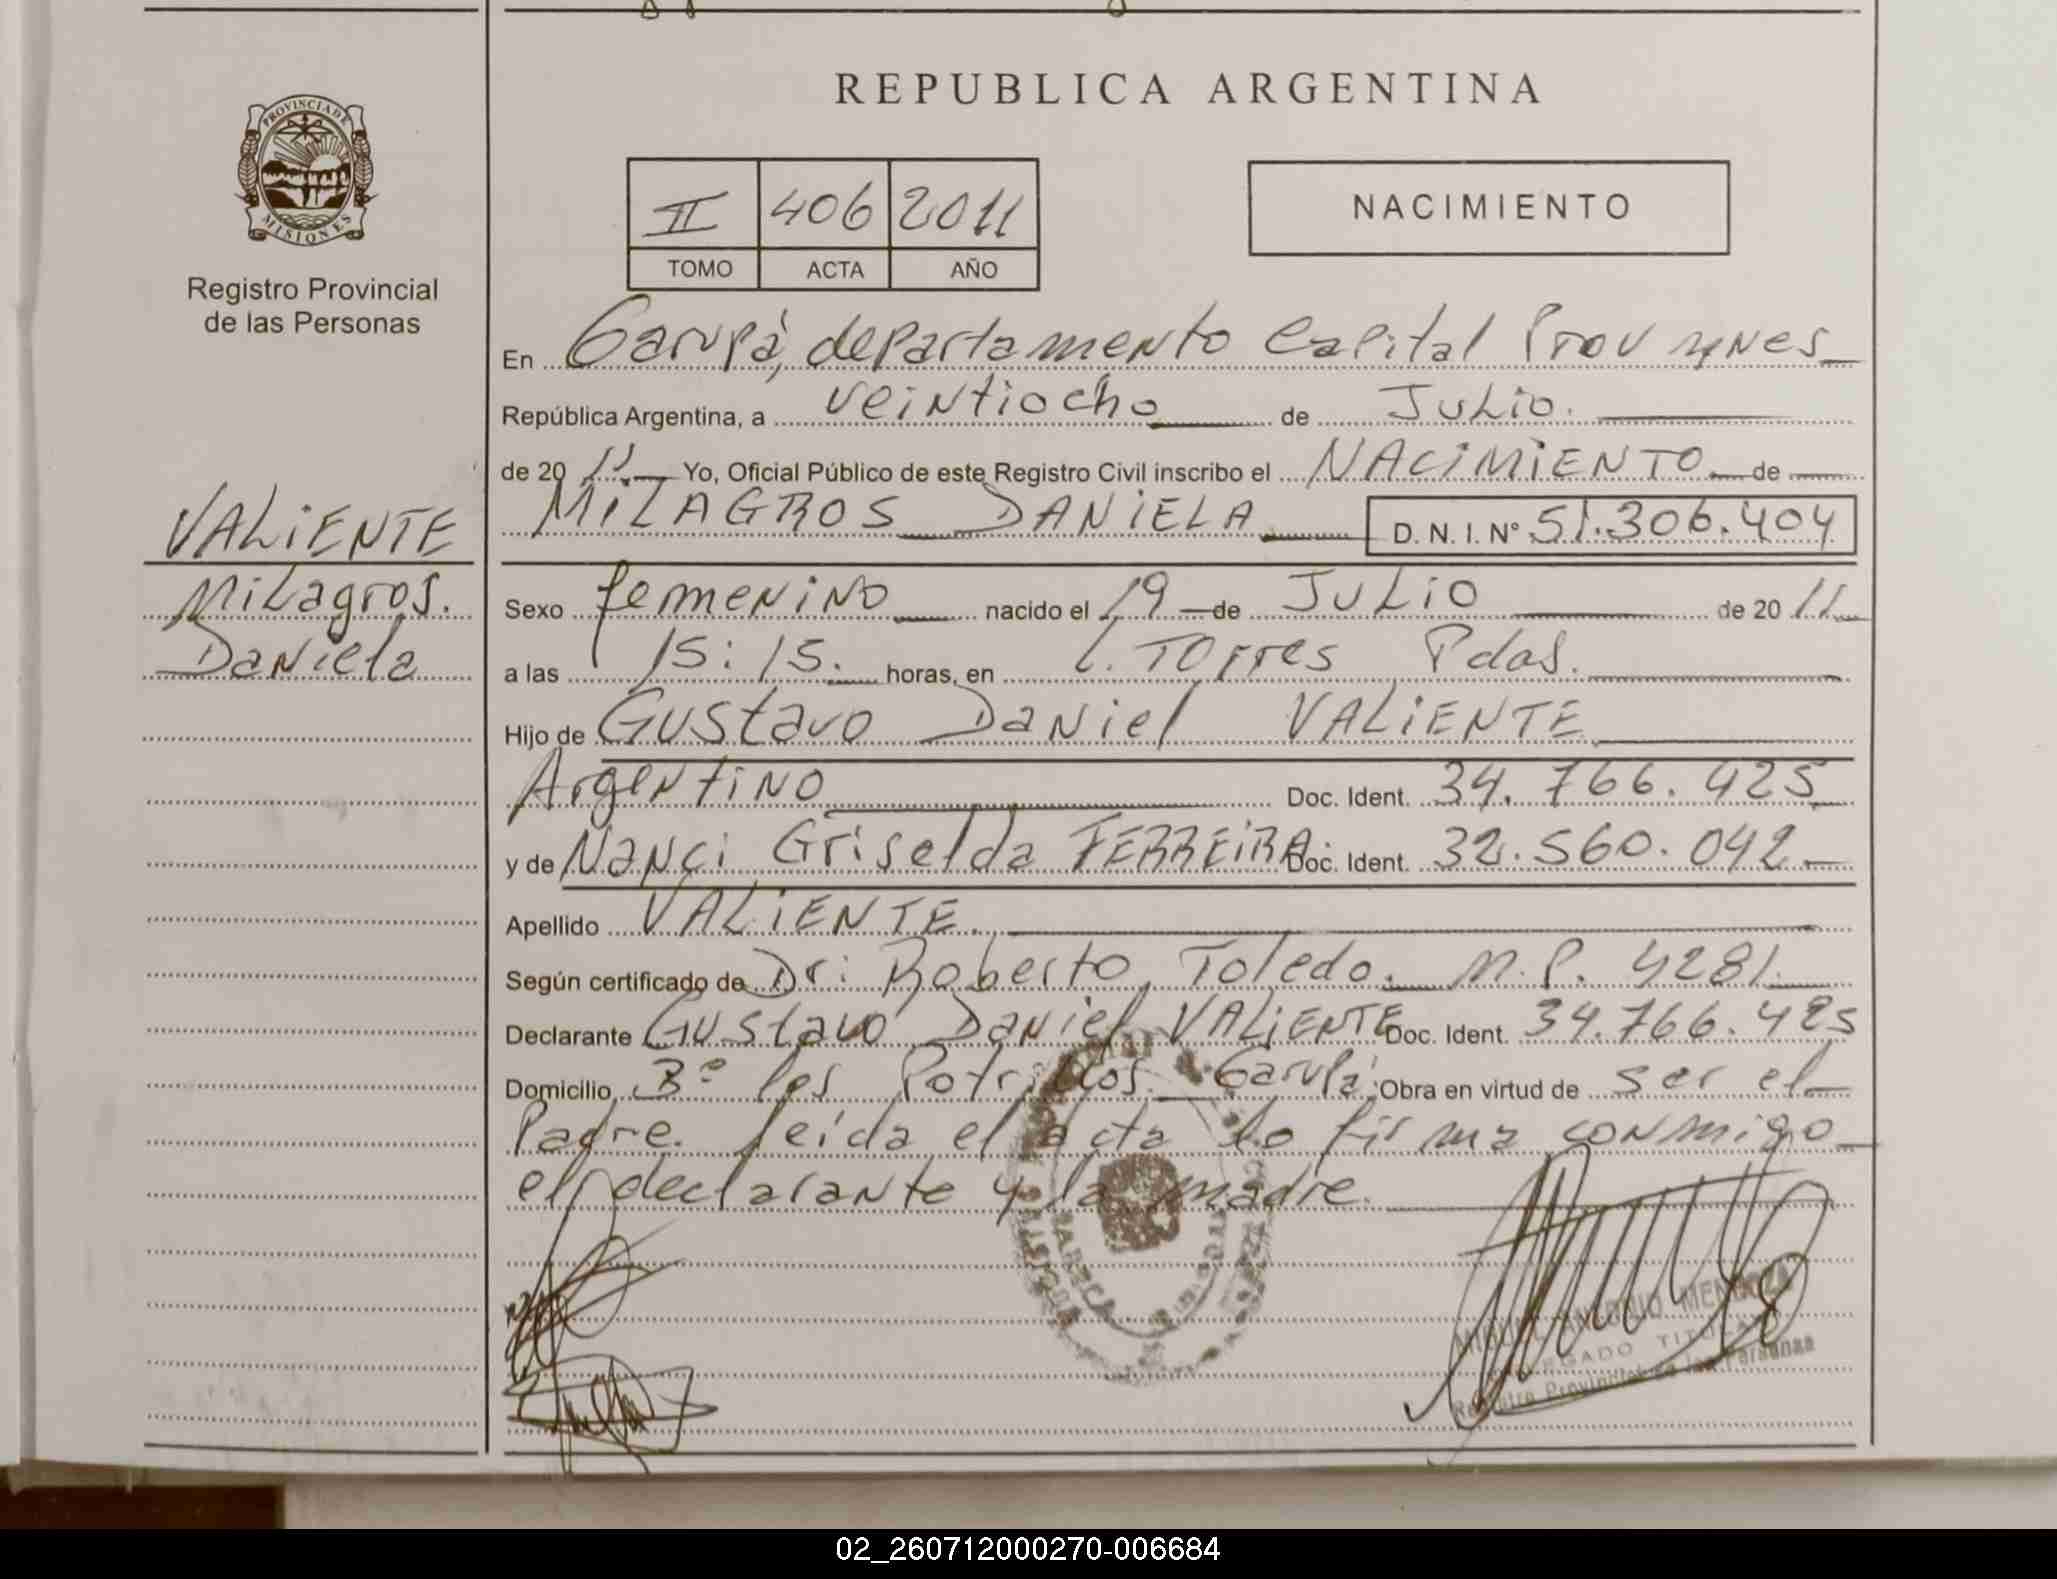 PROVINCIA DE
MISIONES
Registro Provincial
de las Personas
VALIENTE
Milagros.
Daniela
REPUBLICA ARGENTINA
II 406 2011
TOMO ACTA AÑO
NACIMIENTO
En Garupá, departamento Capital Prov
República Argentina, a veintiocho de Julio.
de 20 11 Yo, Oficial Público de este Registro Civil inscribo el NACIMIENTO de
MILAGROS DANIELA D. N. I. Nº 51.306.404
Sexo femenino nacido el 19 de JULIO de 20 11
a las 15:15. horas, en L. Torres Pdas.
Hijo de Gustavo Daniel VALIENTE
Argentino Doc. Ident. 34.766.425
y de Nanci Griselda FERREIRA Doc. Ident. 32.560.042.
Apellido VALIENTE.
Según certificado de Dr: Roberto Toledo. M.P. 4281.
Declarante Gustavo Daniel VALIENTE Doc. Ident. 34.766.425
Domicilio Bº los Potrillos. Garupá. Obra en virtud de ser el
Padre. leída el acta lo firma conmigo
el declarante y la madre.
MIGUEL ANTONIO MENDOZA
DELEGADO TITULAR
Registro Provincial de las Personas
02_260712000270-006684